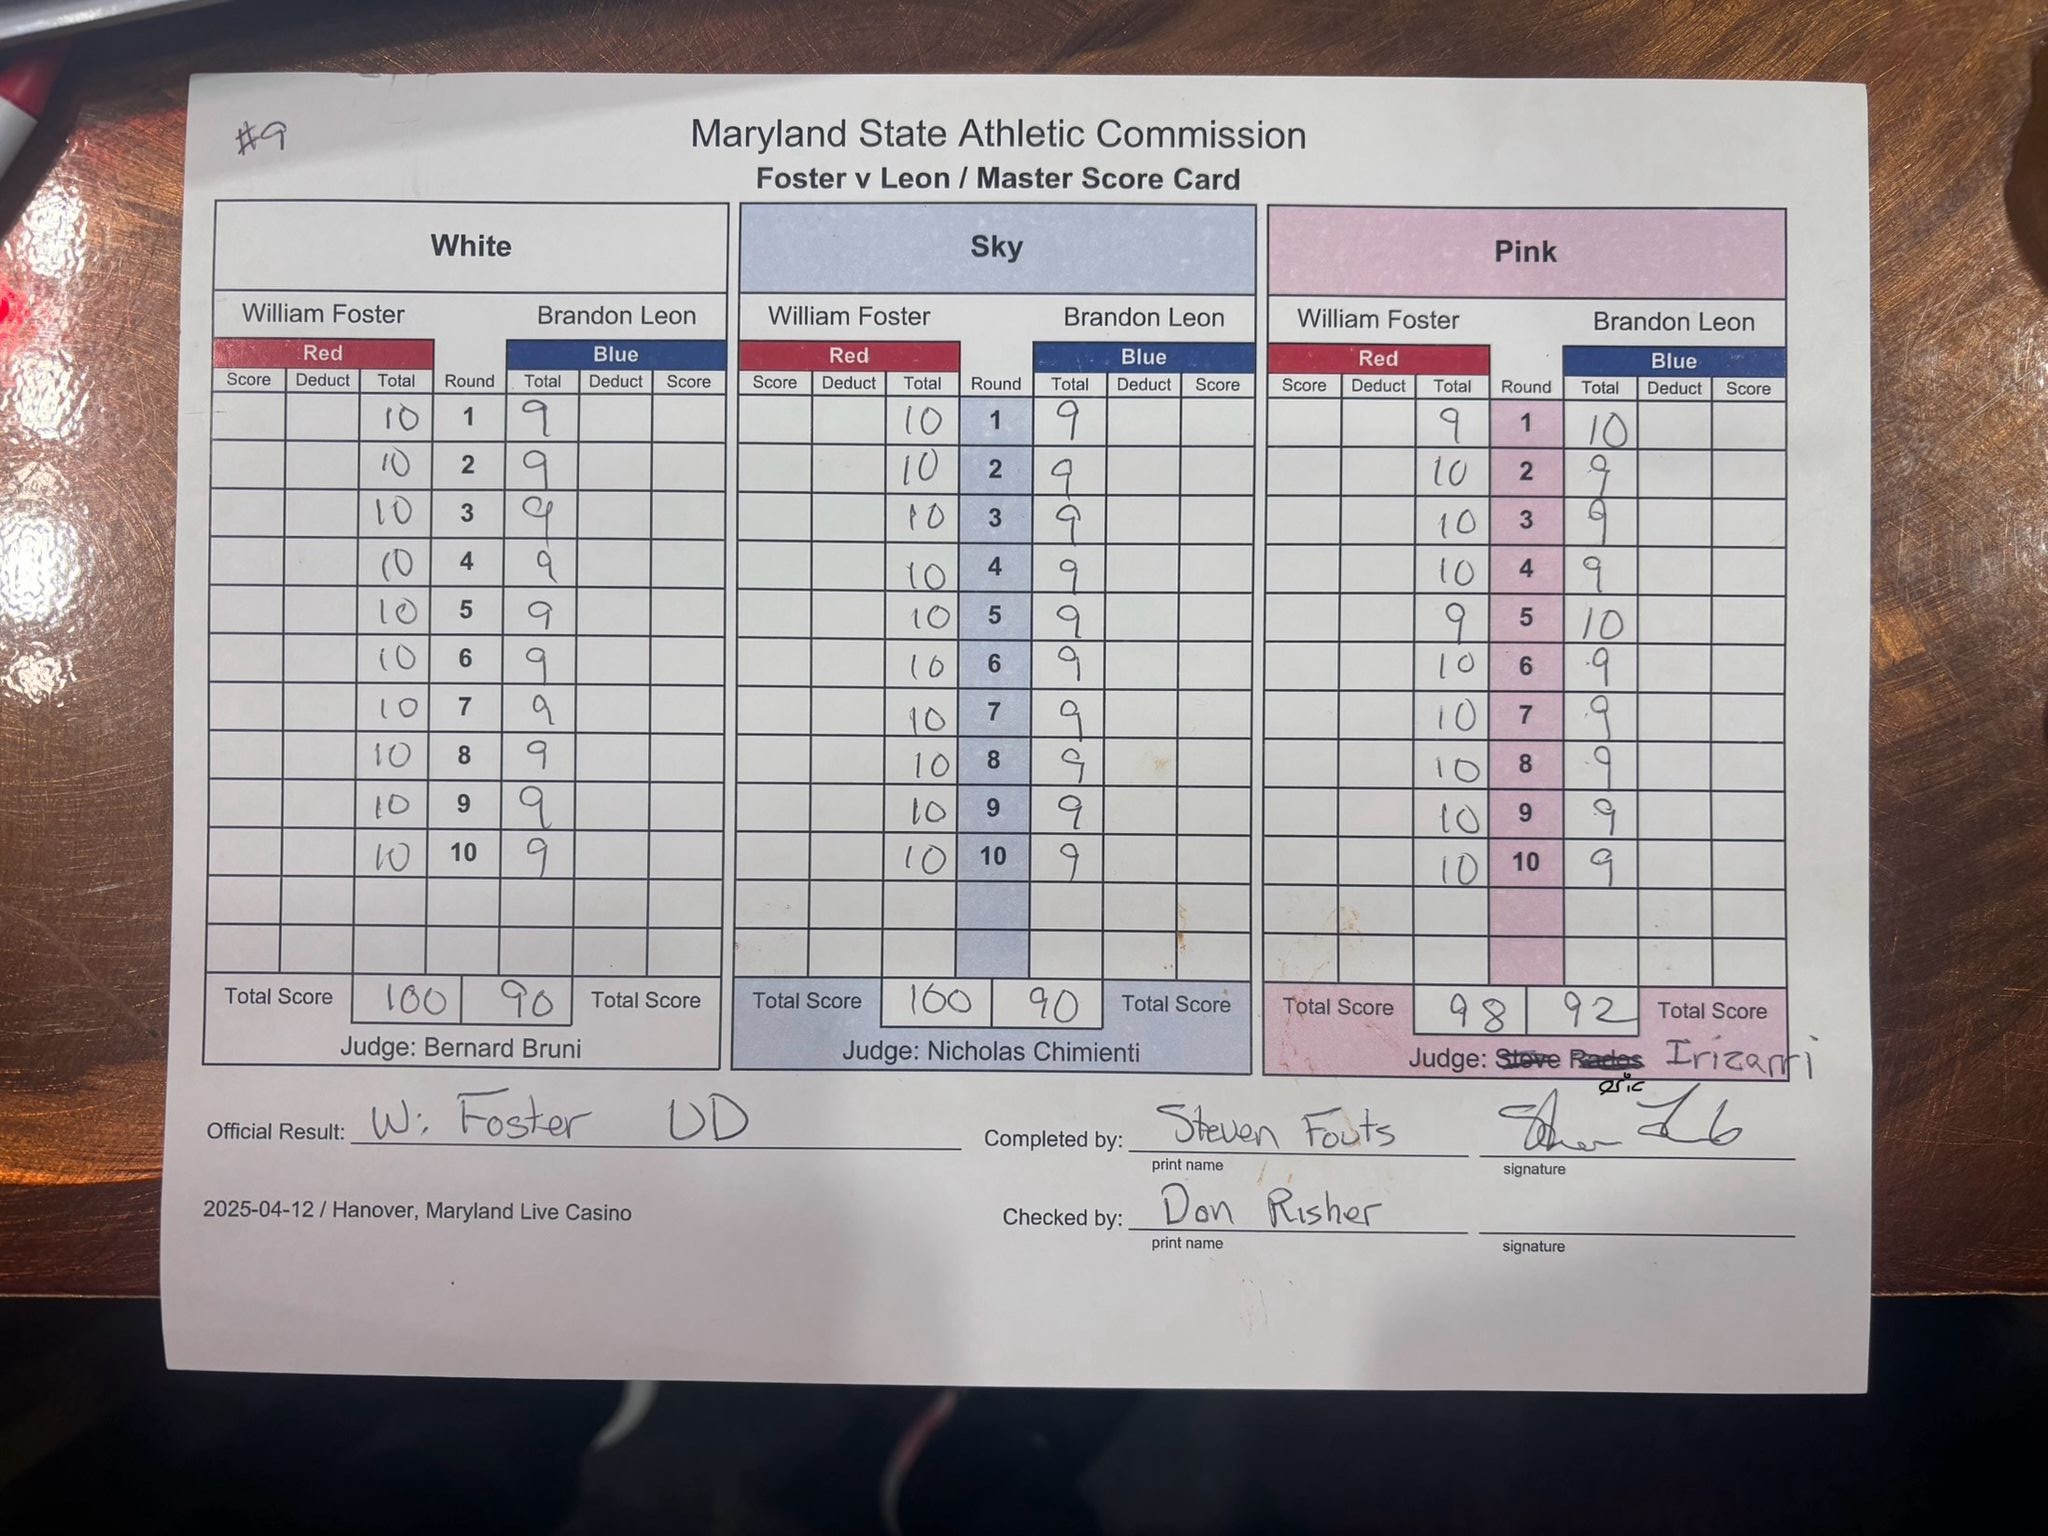 #9
Maryland State Athletic Commission
Foster v Leon / Master Score Card
White Sky Pink
William Foster Brandon Leon William Foster Brandon Leon William Foster Brandon Leon
Red Blue Red Blue Red Blue
Score Deduct Total Round Total Deduct Score Score Deduct Total Round Total Deduct Score Score Deduct Total Round Total Deduct Score
10 1 9 10 1 9 9 1 10
10 2 9 10 2 9 10 2 9
10 3 9 10 3 9 10 3 9
10 4 9 10 4 9 10 4 9
10 5 9 10 5 9 9 5 10
10 6 9 10 6 9 10 6 9
10 7 9 10 7 9 10 7 9
10 8 9 10 8 9 10 8 9
10 9 9 10 9 9 10 9 9
10 10 9 10 10 9 10 10 9
Total Score 100 90 Total Score Total Score 100 90 Total Score Total Score 98 92 Total Score
Judge: Bernard Bruni Judge: Nicholas Chimienti Judge: Steve Rados Irizarri
eric
Official Result: W. Foster UD Completed by: Steven Fouts
print name signature
2025-04-12 / Hanover, Maryland Live Casino Checked by: Don Risher
print name signature